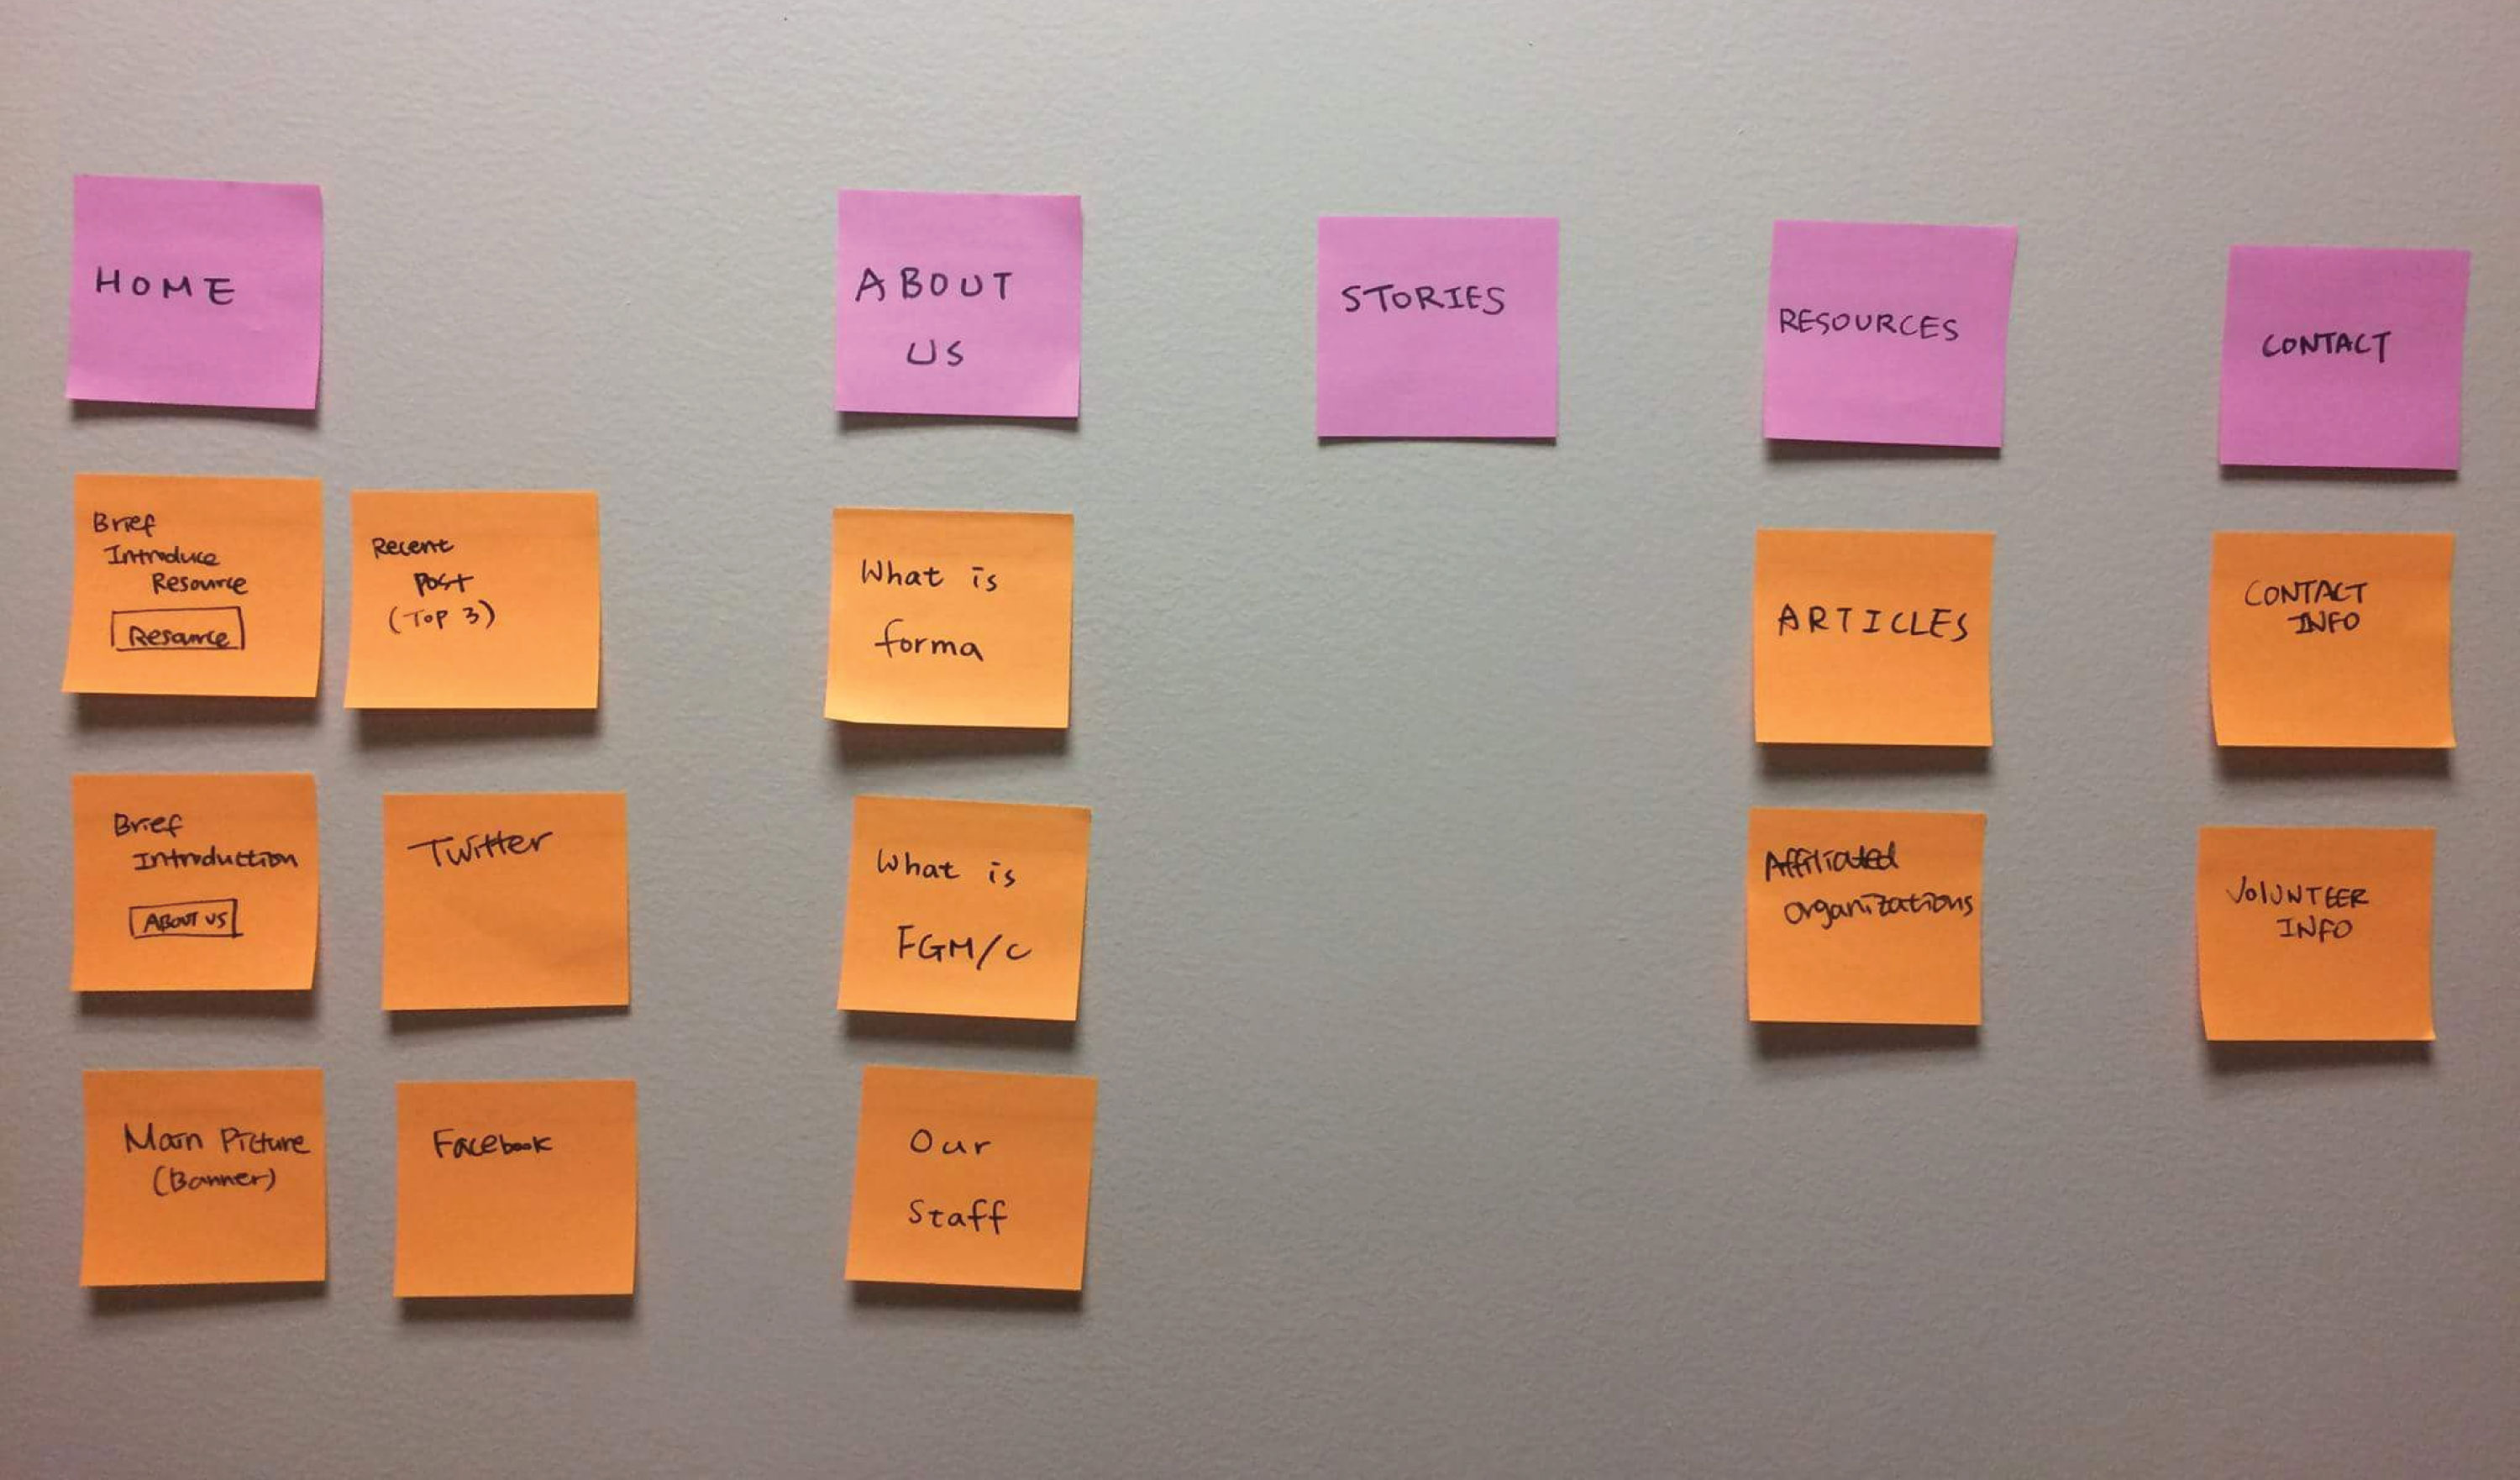 HOME
Brief
Introduce
Resource
Resource
Recent
Post
(Top 3)
Brief
Introduction
ABOUT US
Twitter
Main Picture
(Banner)
Facebook
ABOUT
US
What is
forma
What is
FGM/C
Our
Staff
STORIES
RESOURCES
ARTICLES
Affiliated
organizations
CONTACT
CONTACT
INFO
VOLUNTEER
INFO